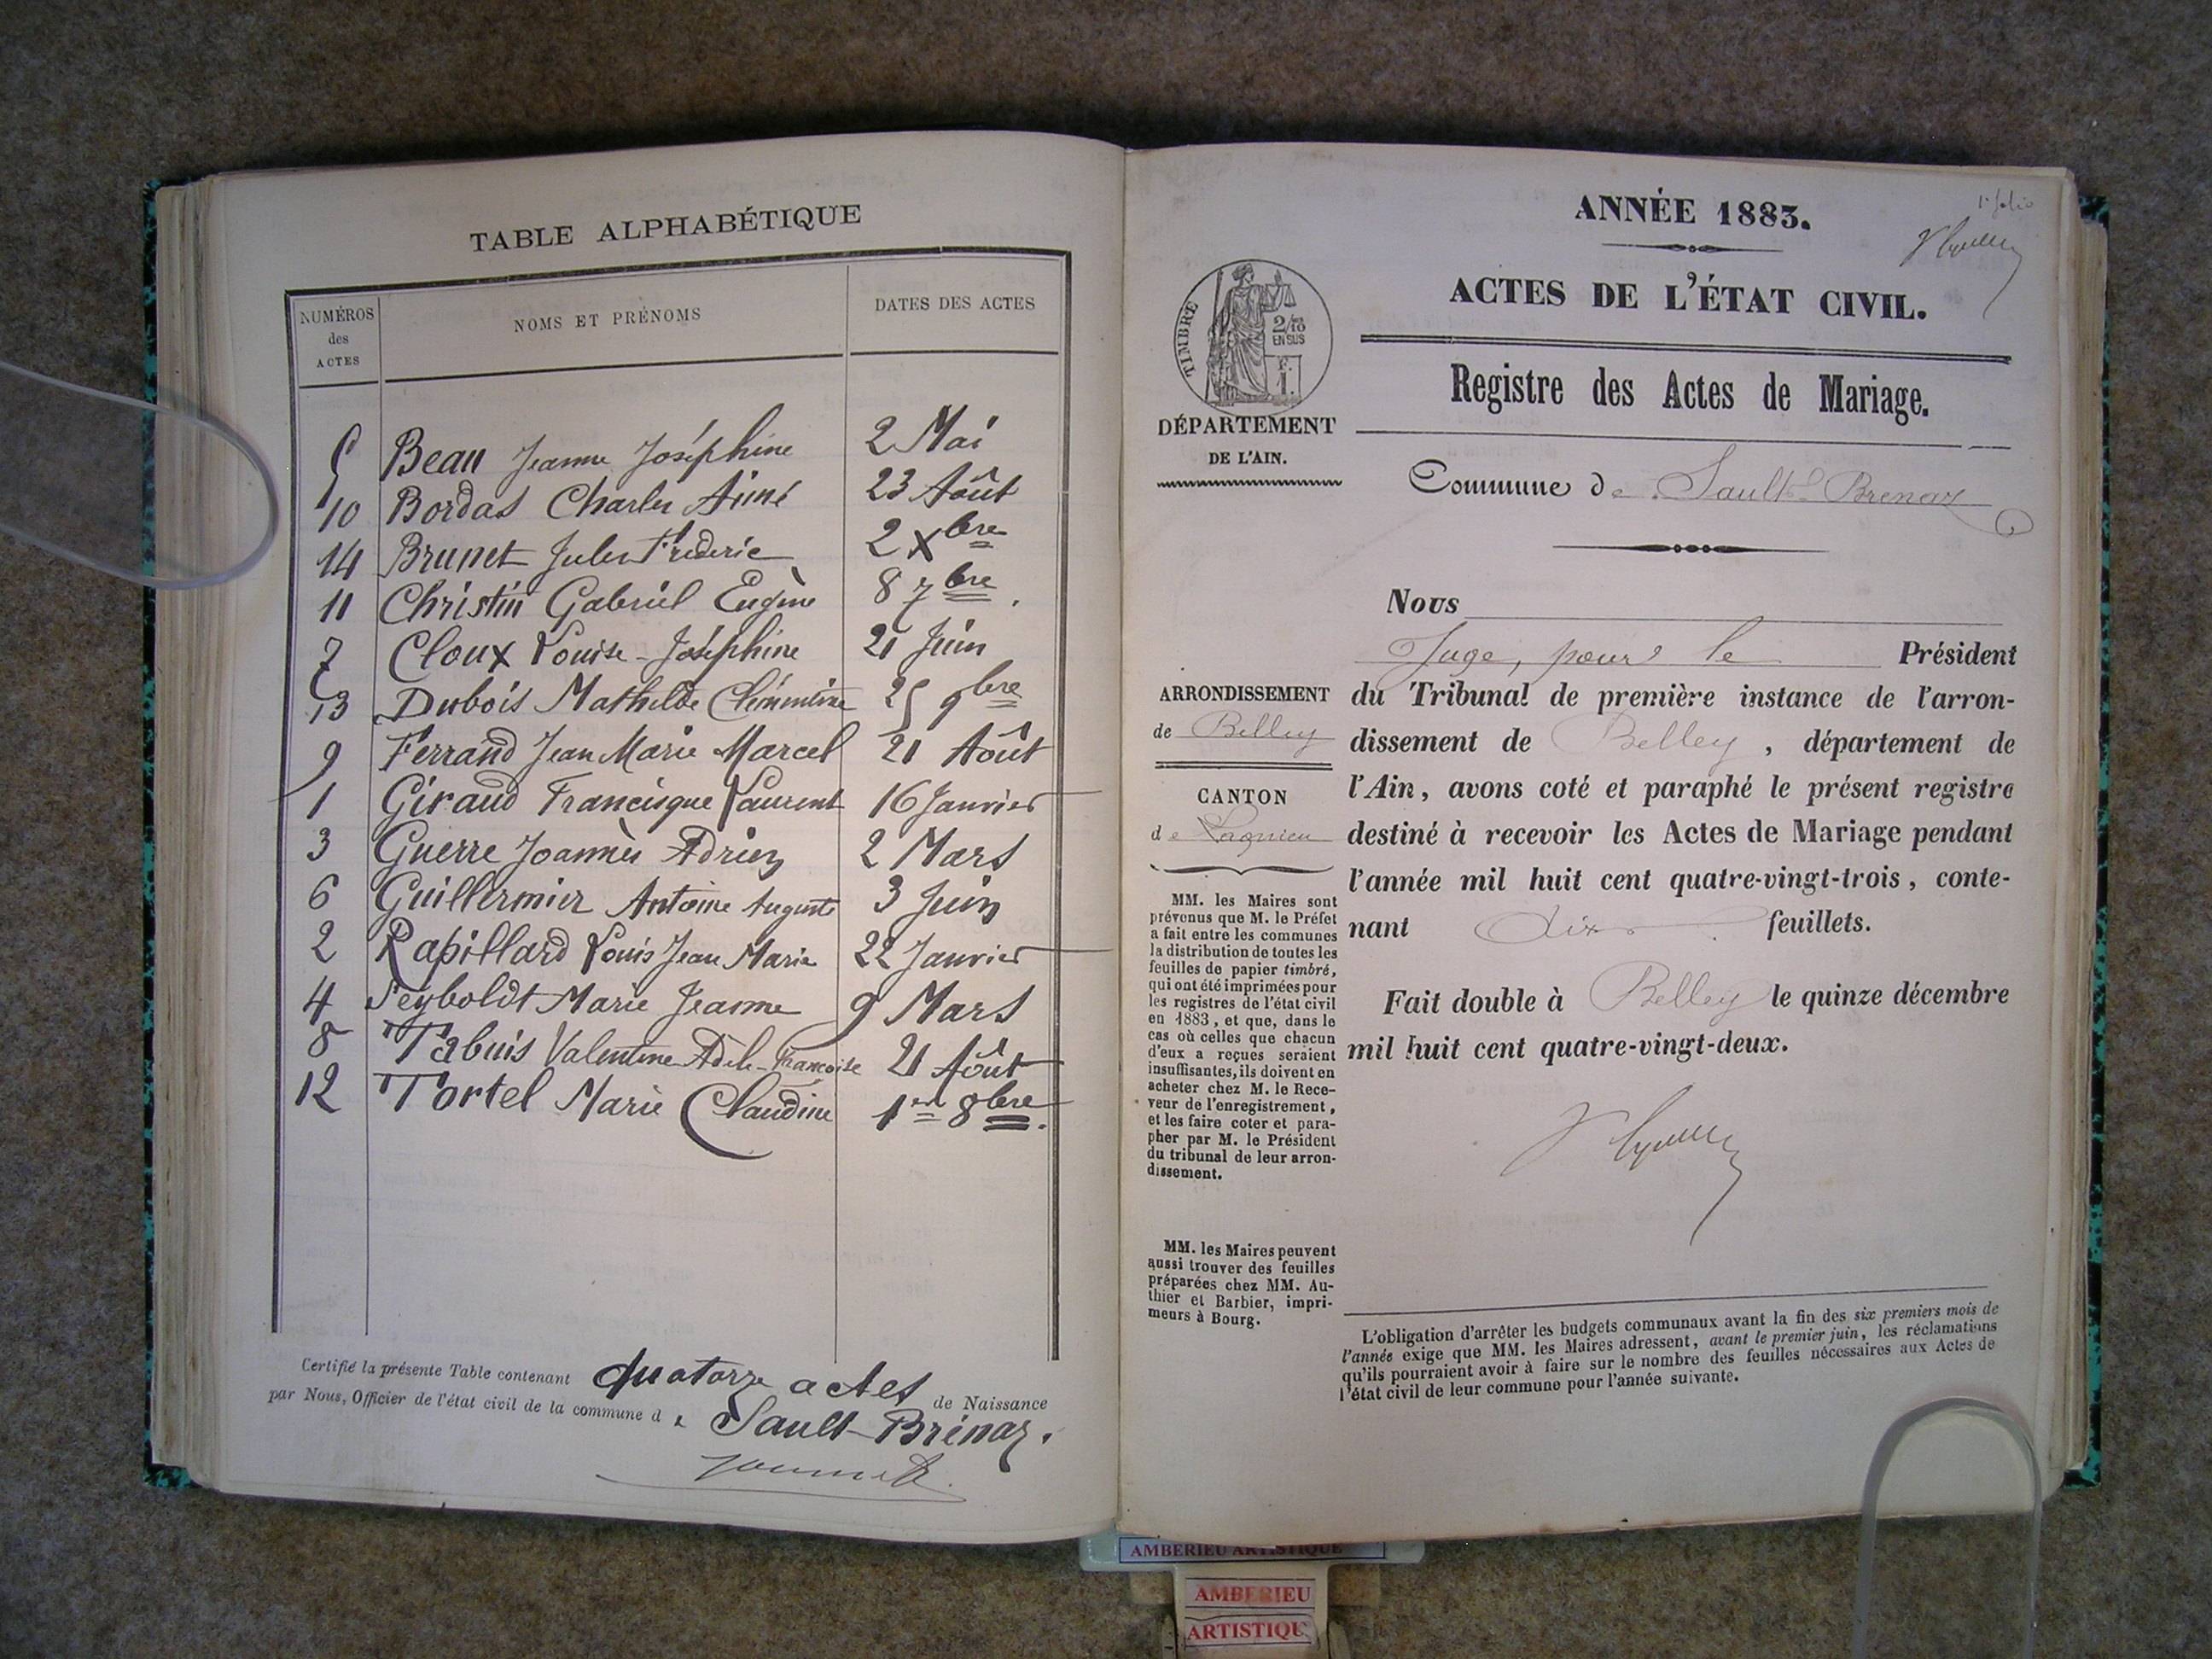 TABLE ALPHABÉTIQUE
NUMÉROS des ACTES
NOMS ET PRÉNOMS
DATES DES ACTES
5 Beau Jeanne Joséphine 2 Mai
10 Bordas Charles Aimé 23 Août
14 Brunet Jules Frédéric 2 Xbre
11 Christin Gabriel Eugène 8 7bre.
7 Cloux Louise-Joséphine 21 Juin
13 Dubois Mathilde Clémentine 25 9bre
9 Ferrand Jean Marie Marcel 21 Août
1 Giraud Francisque Laurent 16 Janvier
3 Guerre Joannès Adrien 2 Mars
6 Guillermier Antoine Auguste 3 Juin
2 Rapillard Louis Jean Marie 22 Janvier
4 Seyboldt Marie Jeanne 9 Mars
8 Tabuis Valentine Adèle-Françoise 21 Août
12 Tortel Marie Claudine 1er 8bre.
Certifié la présente Table contenant quatorze actes de Naissance
par Nous, Officier de l'état civil de la commune de Sault-Brénaz.
1er folio
ANNÉE 1883.
ACTES DE L'ÉTAT CIVIL.
Registre des Actes de Mariage.
TIMBRE
2/10
EN SUS
F.
1.
DÉPARTEMENT
DE L'AIN.
Commune de Sault-Brenaz
Nous
Juge, pour le Président
du Tribunal de première instance de l'arron-
dissement de Belley, département de
l'Ain, avons coté et paraphé le présent registre
destiné à recevoir les Actes de Mariage pendant
l'année mil huit cent quatre-vingt-trois, conte-
nant dix feuillets.
Fait double à Belley le quinze décembre
mil huit cent quatre-vingt-deux.
ARRONDISSEMENT
de Belley
CANTON
de Lagnieu
MM. les Maires sont
prévenus que M. le Préfet
a fait entre les communes
la distribution de toutes les
feuilles de papier timbré,
qui ont été imprimées pour
les registres de l'état civil
en 1883, et que, dans le
cas où celles que chacun
d'eux a reçues seraient
insuffisantes, ils doivent en
acheter chez M. le Rece-
veur de l'enregistrement,
et les faire coter et para-
pher par M. le Président
du tribunal de leur arron-
dissement.
MM. les Maires peuvent
aussi trouver des feuilles
préparées chez MM. Au-
thier et Barbier, impri-
meurs à Bourg.
L'obligation d'arrêter les budgets communaux avant la fin des six premiers mois de
l'année exige que MM. les Maires adressent, avant le premier juin, les réclamations
qu'ils pourraient avoir à faire sur le nombre des feuilles nécessaires aux Actes de
l'état civil de leur commune pour l'année suivante.
AMBERIEU ARTISTIQUE
AMBERIEU
ARTISTIQU